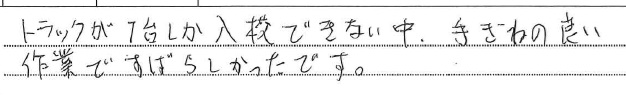 トラックが1台しか入校できない中、手ぎわの良い
作業ですばらしかったです。